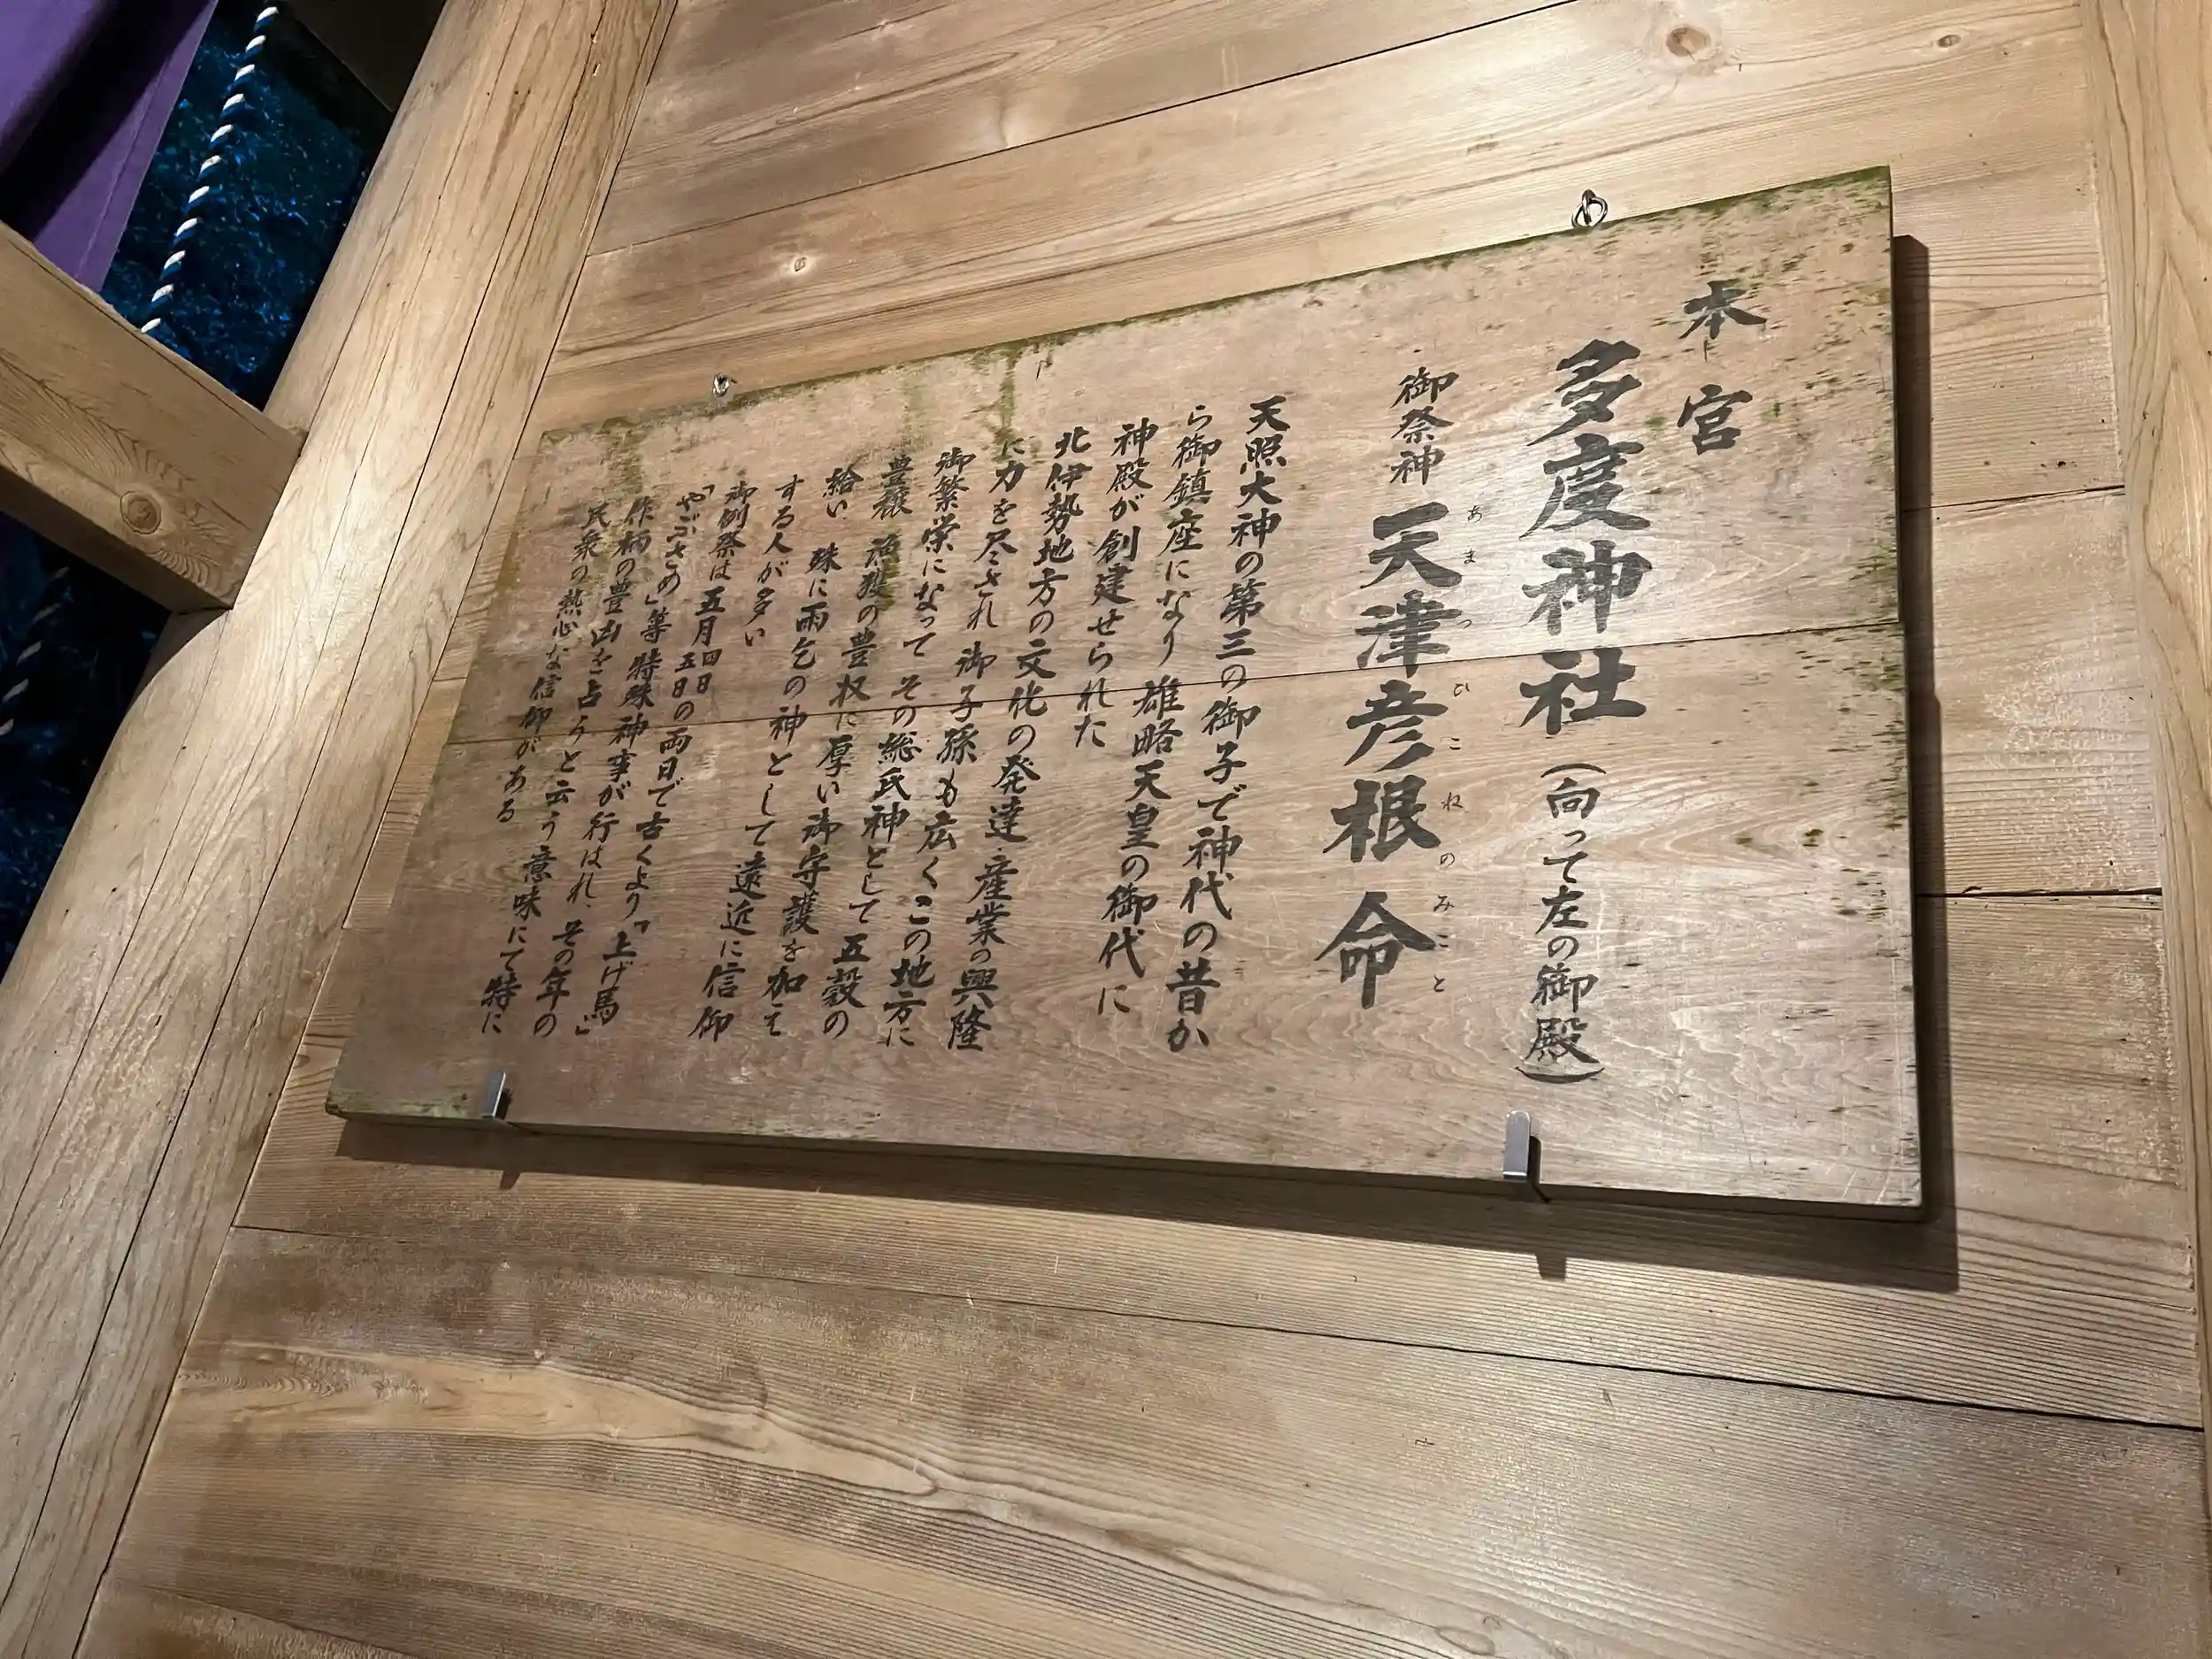 本宮
多度神社(向って左の御殿)
御祭神 天津彦根命
あまつひこねのみこと
天照大神の第三の御子で神代の昔か
ら御鎮座になり 雄略天皇の御代に
神殿が創建せられた
北伊勢地方の文化の発達 産業の興隆
に力を尽され 御子孫も広くこの地方に
御繁栄になって その総氏神として 五穀の
豊穣 漁獲の豊収に厚い御守護を加え
給い 殊に雨乞の神として遠近に信仰
する人が多い
御例祭は五月四日五日の両日で古くより「上げ馬」
「やぶさめ」等特殊神事が行はれ その年の
作柄の豊凶を占うと云う意味にて特に
民衆の熱心な信仰がある